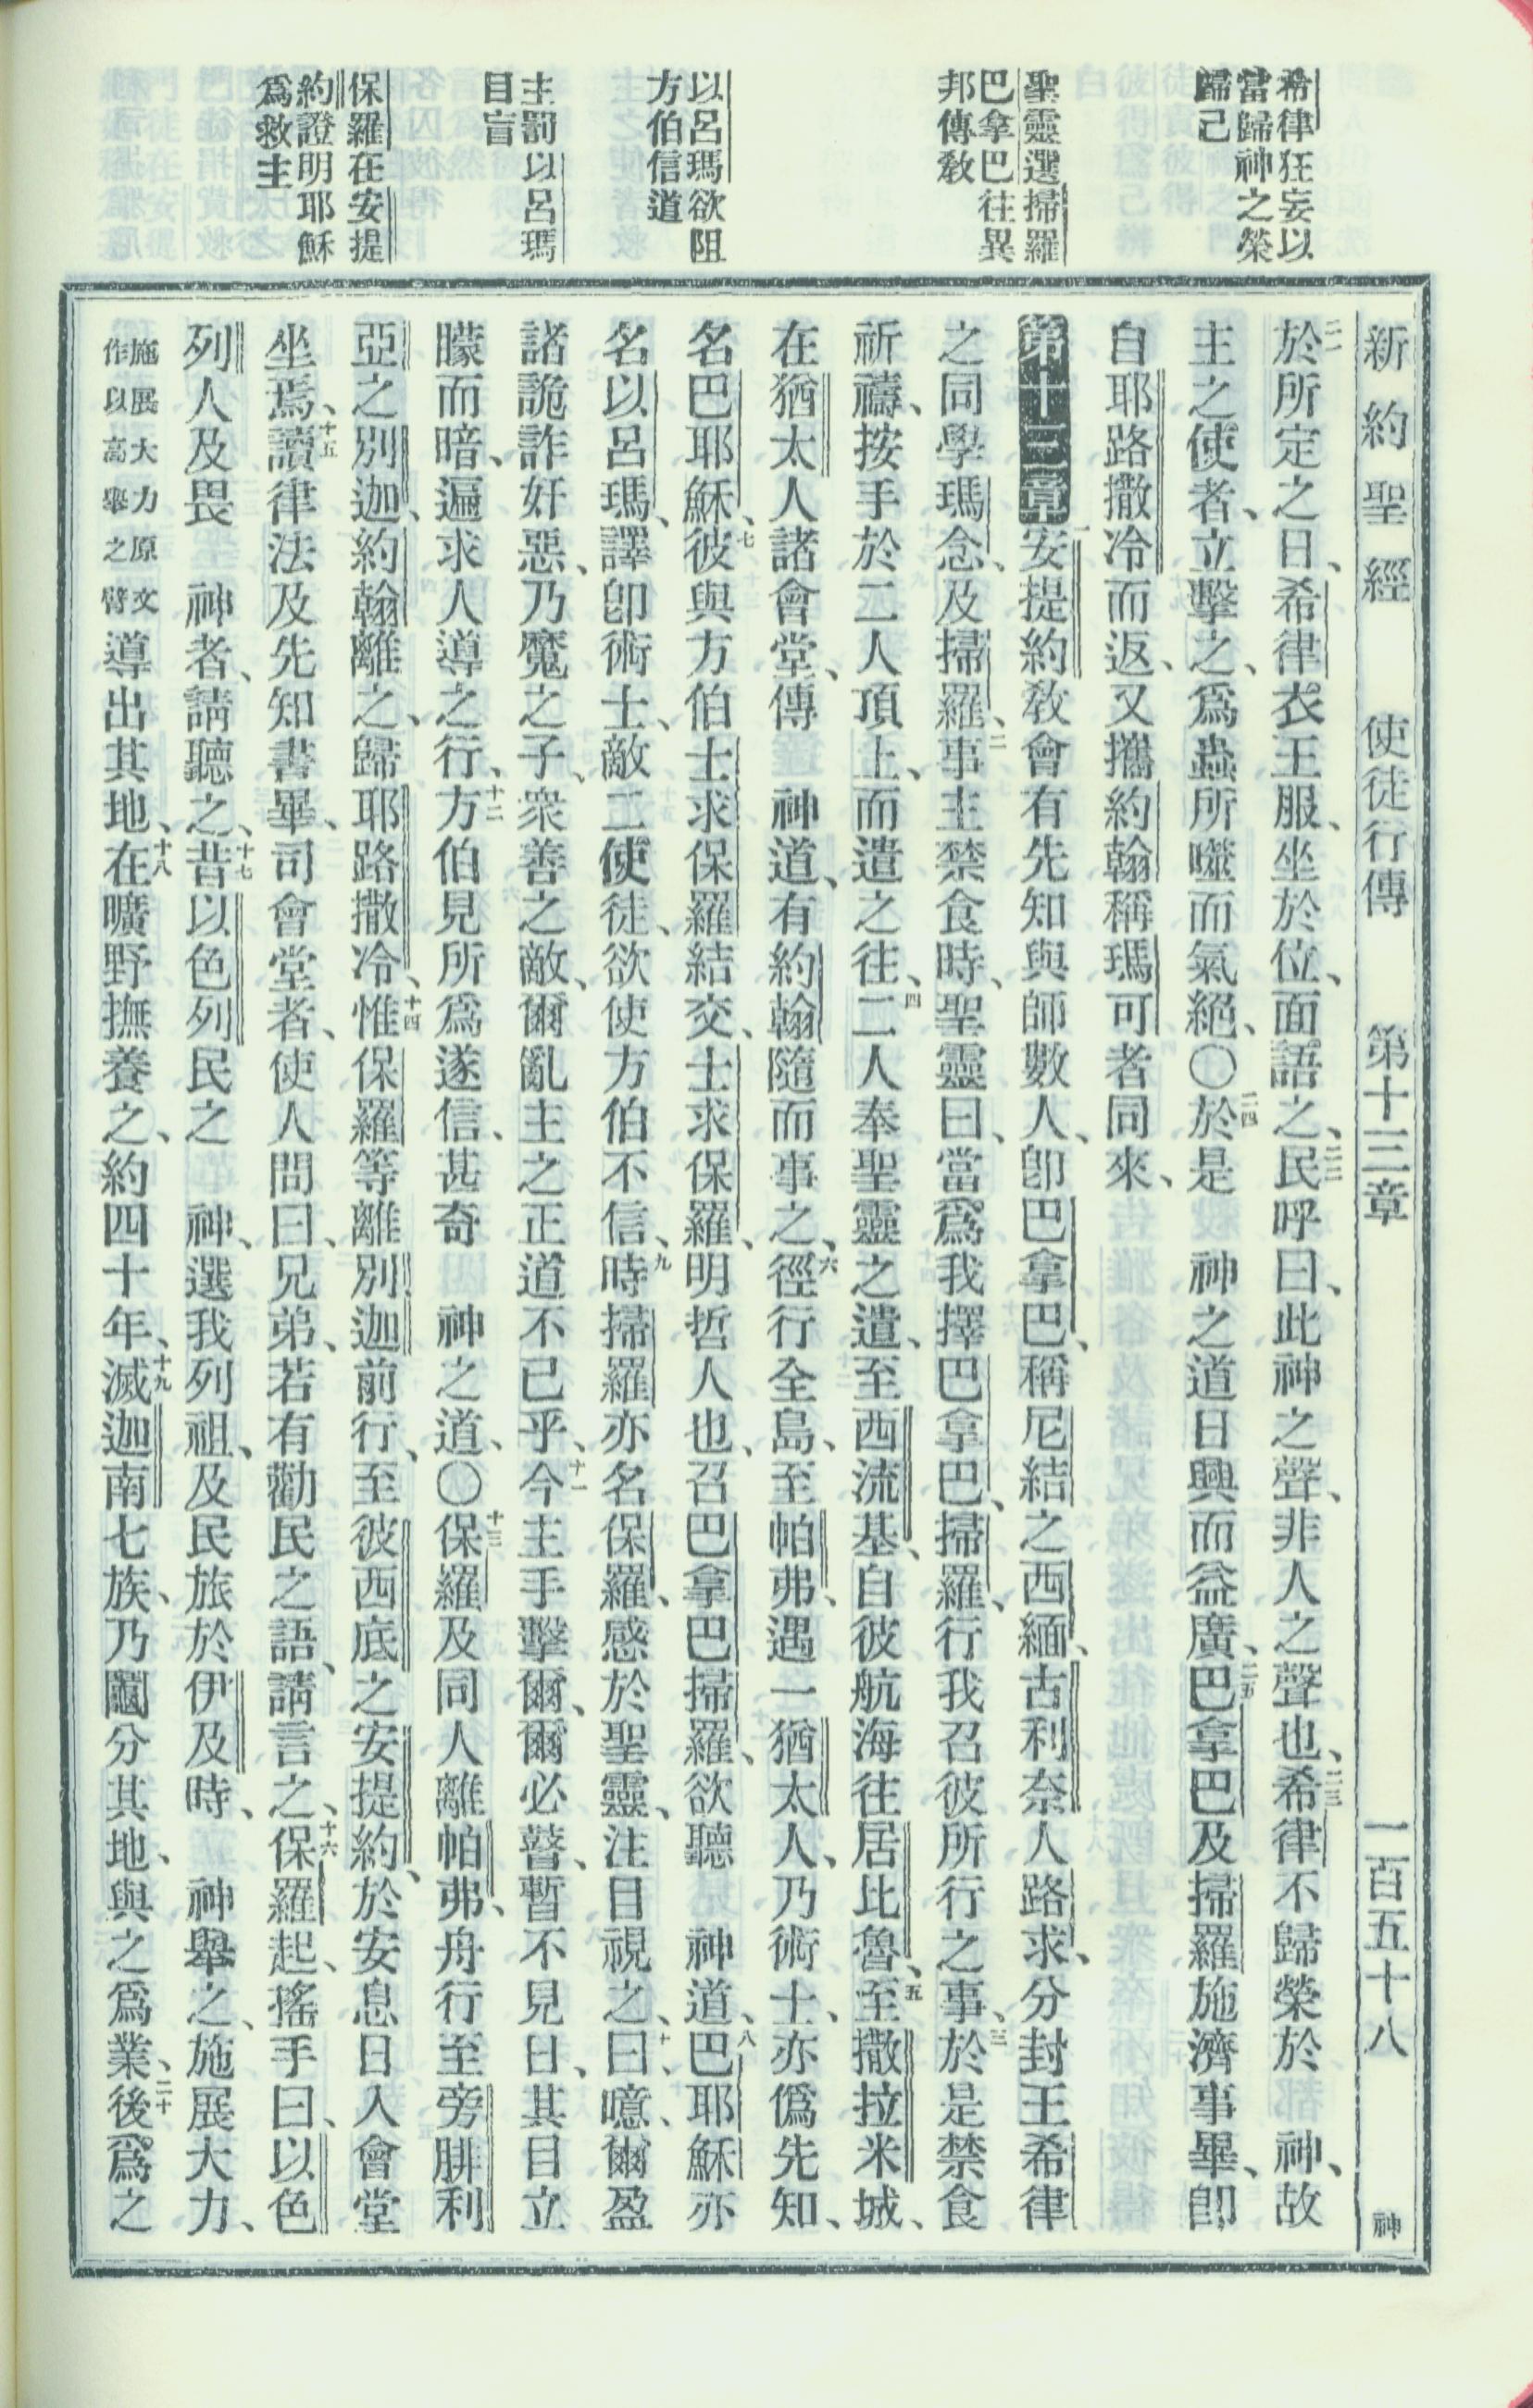 希律狂妄以
當歸神之榮
歸己
聖靈選掃羅
巴拿巴往異
邦傳敎
以呂瑪欲阻
方伯信道
主罰以呂瑪
目盲
保羅在安提
約證明耶穌
爲救主
新約聖經 使徒行傳 第十三章 一百五十八 神
二一於所定之日、希律衣王服、坐於位、面語之、二二民呼曰、此神之聲、非人之聲也、二三希律不歸榮於 神、故
主之使者、立擊之、爲蟲所噬而氣絕、〇二四於是 神之道日興而益廣、二五巴拿巴及掃羅施濟事畢、卽
自耶路撒冷而返、又攜約翰稱瑪可者同來、
第十三章 一安提約敎會有先知與師數人、卽巴拿巴、稱尼結之西緬、古利奈人路求、分封王希律
之同學瑪念、及掃羅、二事主禁食時、聖靈曰、當爲我擇巴拿巴、掃羅、行我召彼所行之事、三於是禁食
祈禱、按手於二人頂上、而遣之往、四二人奉聖靈之遣、至西流基、自彼航海往居比魯、五至撒拉米城、
在猶太人諸會堂、傳 神道、有約翰隨而事之、六徑行全島、至帕弗、遇一猶太人、乃術士、亦僞先知、
名巴耶穌、七彼與方伯士求保羅結交、士求保羅、明哲人也、召巴拿巴掃羅、欲聽 神道、八巴耶穌亦
名以呂瑪、譯卽術士、敵二使徒、欲使方伯不信、九時掃羅亦名保羅、感於聖靈、注目視之、十曰、噫、爾盈
諸詭詐奸惡、乃魔之子、衆善之敵、爾亂主之正道不已乎、十一今主手擊爾、爾必瞽、暫不見日、其目立
矇而暗、遍求人導之行、十二方伯見所爲遂信、甚奇 神之道、〇十三保羅及同人離帕弗、舟行至旁腓利
亞之別迦、約翰離之、歸耶路撒冷、十四惟保羅等離別迦前行、至彼西底之安提約、於安息日入會堂
坐焉、十五讀律法及先知書畢、司會堂者、使人問曰、兄弟、若有勸民之語、請言之、十六保羅起、搖手曰、以色
列人及畏 神者、請聽之、十七昔以色列民之 神、選我列祖、及民旅於伊及時、 神舉之、施展大力、
施展大力原文
作以高舉之臂
導出其地、十八在曠野撫養之、約四十年、十九滅迦南七族、乃鬮分其地、與之爲業、二十後爲之